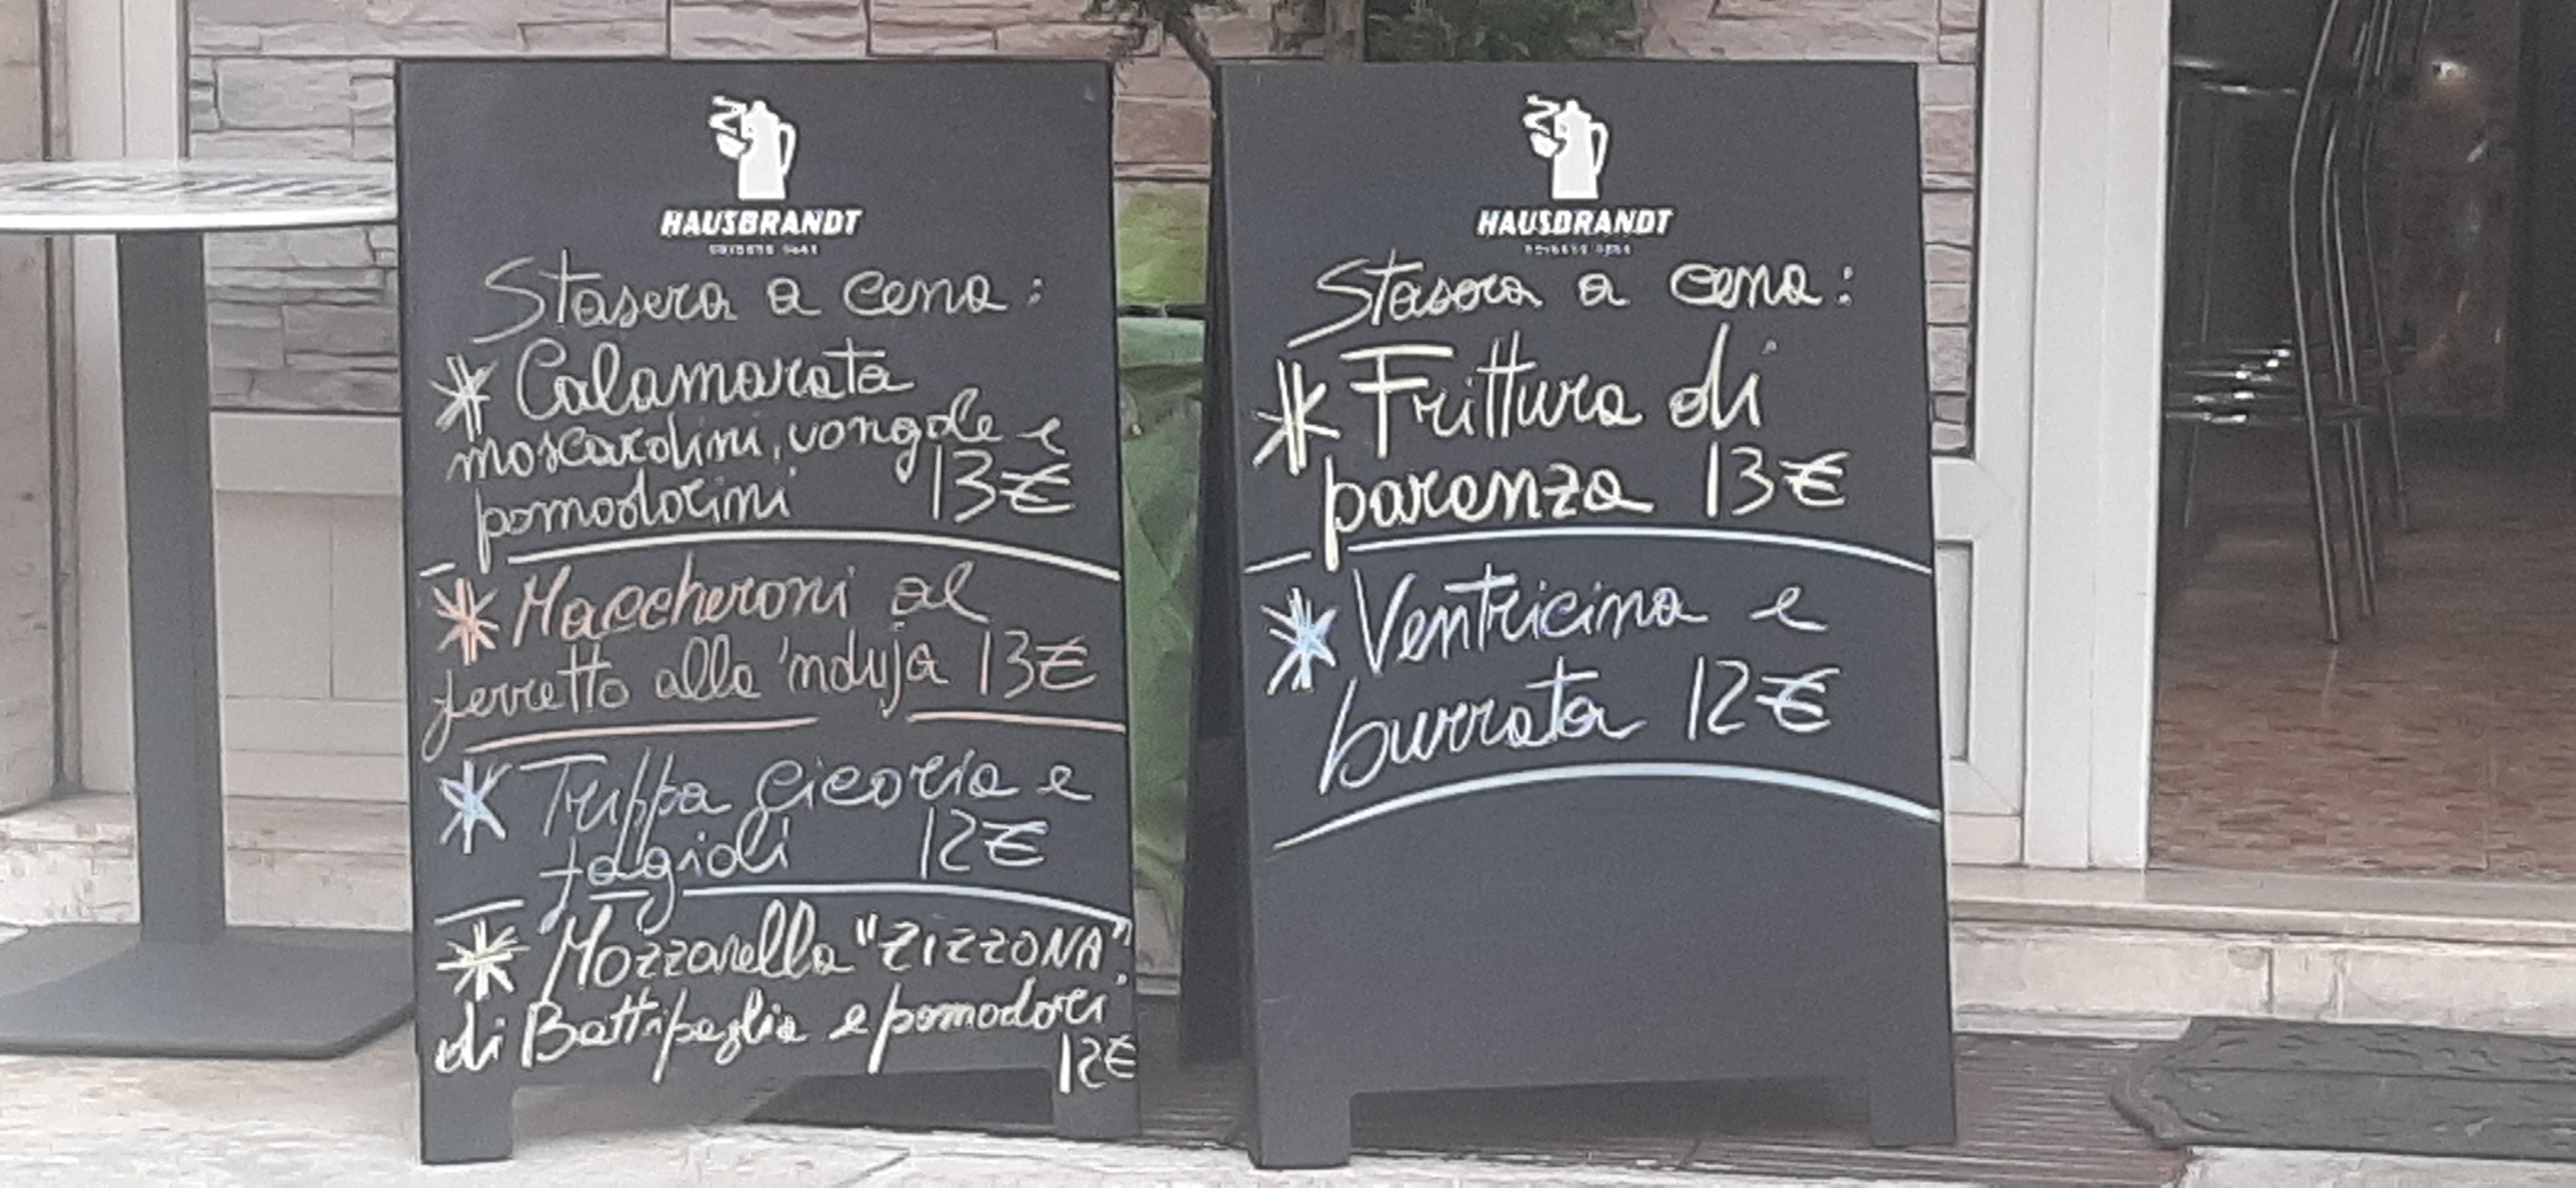 HAUSBRANDT
Stasera a cena:
* Calamarata
moscardini, vongole e
pomodorini 13€
* Maccheroni al
ferretto alla 'nduja 13€
* Trippa cicoria e
fagioli 12€
* Mozzarella "ZIZZONA"
di Battipaglia e pomodori
12€
HAUSBRANDT
Stasera a cena:
* Frittura di
paranza 13€
* Ventricina e
burrata 12€